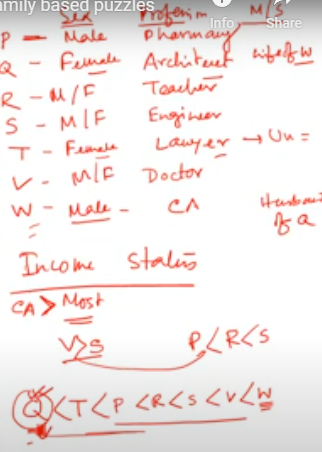 amily based puzzles
Info Share
Sex Profession M/S
P — Male Pharmacy
Q - Female Architect wife of W
R - M/F Teacher
S - M/F Engineer
T - Female Lawyer → Un =
V - M/F Doctor
W - Male - CA Husband of Q
Income Status
CA > Most
V>S P<R<S
Q<T<P<R<S<V<W